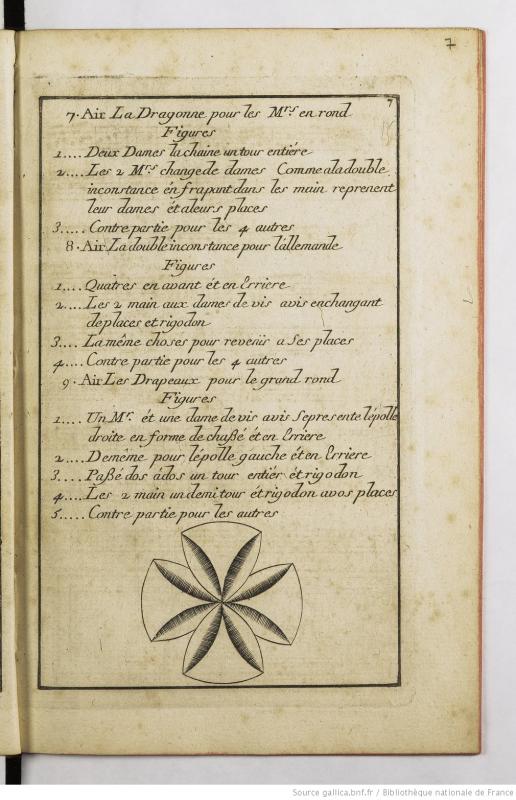 7
7
7. Air La Dragonne pour les Mrs. en rond
Figures
1.... Deux Dames la chaine un tour entiére
2.... Les 2 Mrs. change de dames Comme a la double
inconstance én frapant dans les main reprenent
leur dames ét a leurs places
3..... Contre partie pour les 4 autres
8. Air La double inconstance pour l'allemande
Figures
1.... Quatres en avant ét en Erriere
2.... Les 2 main aux dames de vis avis enchangant
de places et rigodon
3.... La même choses pour revenir a ses places
4.... Contre partie pour les 4 autres
9. Air Les Drapeaux pour le grand rond
Figures
1.... Un Mr. ét une dame de vis avis se presente lépolle
droite en forme de chaßé ét en Erriere
2.... De même pour lépolle gauche ét en Erriere
3.... Paßé dos ádos un tour entiér ét rigodon
4.... Les 2 main un demi tour ét rigodon a vos places
5..... Contre partie pour les autres
Source gallica.bnf.fr / Bibliothèque nationale de France